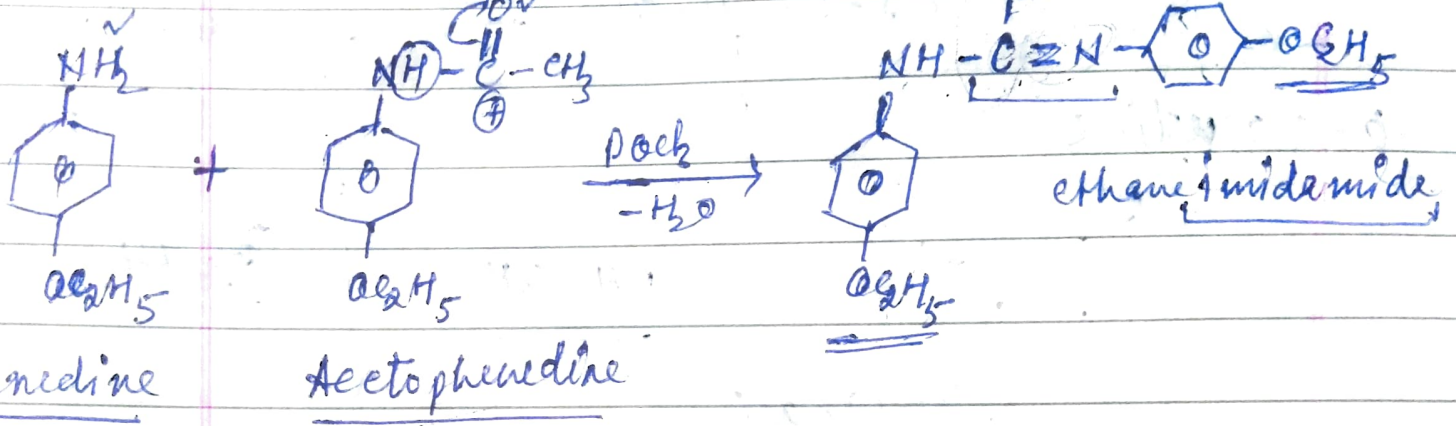 O
NH2 NH-C-CH3 NH-C=N- -OC2H5
+ ⊕ POCl3
-H2O ethaneimidamide
OC2H5 OC2H5 OC2H5
nedine Acetophenedine